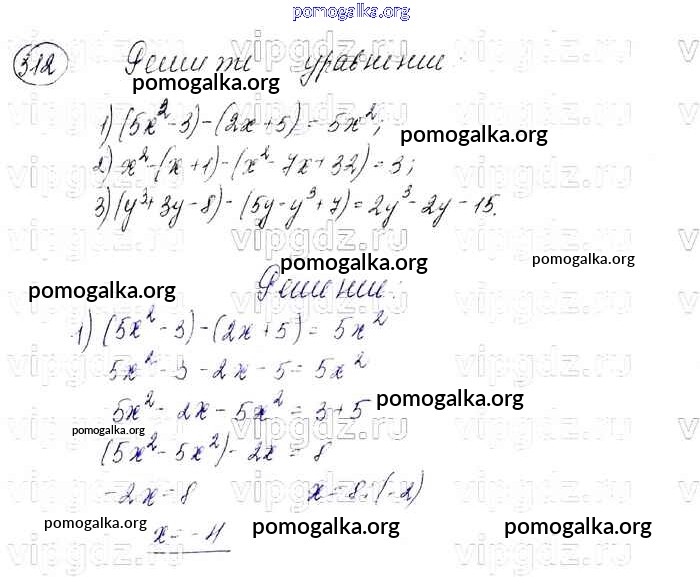 pomogalka.org
312 Решите уравнение:
pomogalka.org
1) (5x² - 3) - (2x + 5) = 5x²;
pomogalka.org
2) x² - (x + 1) - (x² - 7x + 32) = 3;
3) (y³ + 3y - 8) - (5y - y³ + 7) = 2y³ - 2y - 15.
pomogalka.org pomogalka.org
Решение:
pomogalka.org
1) (5x² - 3) - (2x + 5) = 5x²
5x² - 3 - 2x - 5 = 5x²
5x² - 2x - 5x² = 3 + 5
pomogalka.org
pomogalka.org
(5x² - 5x²) - 2x = 8
-2x = 8 x = 8 : (-2)
x = -4
pomogalka.org pomogalka.org pomogalka.org
vipgdz.ru